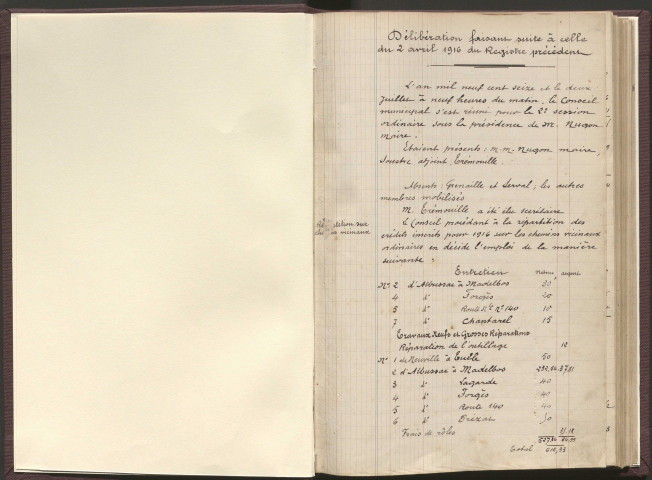 Délibération faisant suite à celle
du 2 avril 1916 du Registre précédent
L'an mil neuf cent seize et le deux
juillet à neuf heures du matin, le Conseil
municipal s'est réuni pour la 2e session
ordinaire sous la présidence de M. Nugon
maire.
Etaient présents : M.M. Nugon maire,
Soustre adjoint Trémouille.
Absents : Grenaille et Serval ; les autres
membres mobilisés
M. Trémouille a été élu secrétaire
Le Conseil procédant à la répartition des
crédits inscrits pour 1916 sur les chemins vicinaux
ordinaires en décide l'emploi de la manière
suivante :
Entretien nature argent
No 2 d'Albussac à Madelbos 20
4 d° Forgès 20
5 d° Route Nle No 140 10
7 d° Chantarel 15
Travaux Neufs et Grosses Réparations
Réparation de l'outillage 12
No 1 de Neuville à Eublé 50
2 d'Albussac à Madelbos
3 d° Lagarde 40
4 d° Forgès 40
5 d° Route 140 40
6 d° 50
Frais de rôles
Total